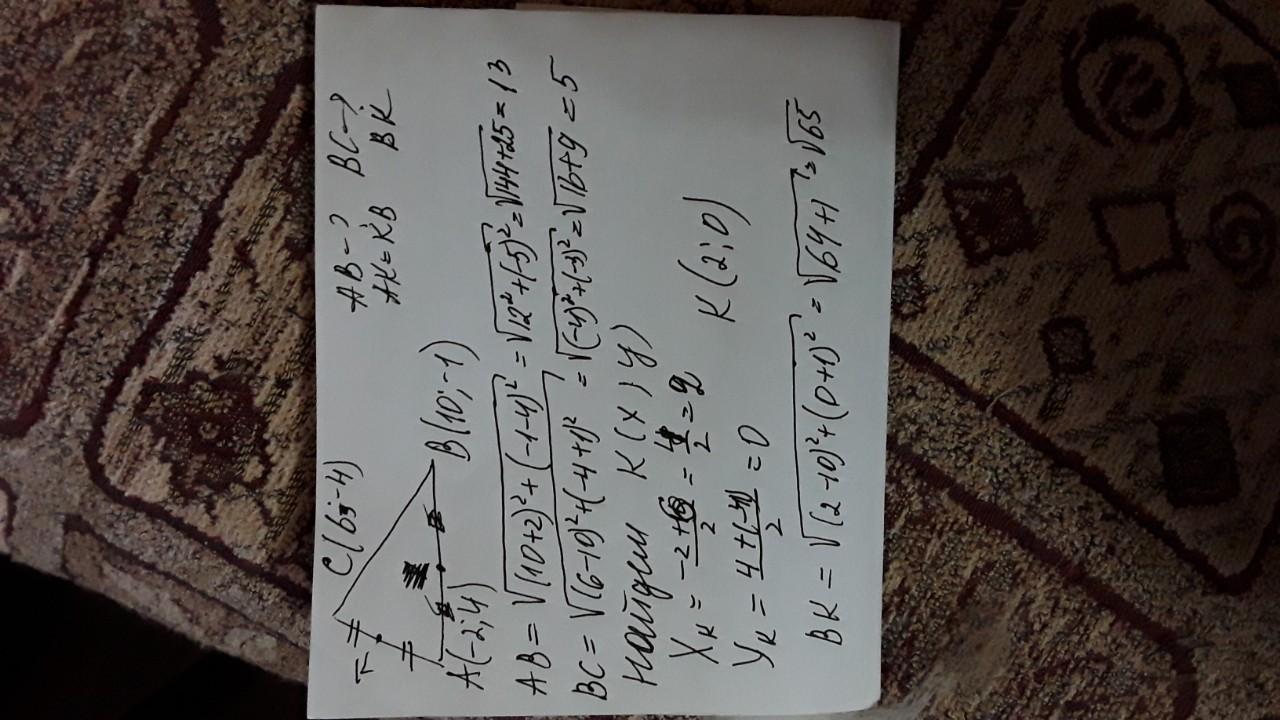 C(6;-4) AB-? BC-?
AK=KB BK
K
A(-2;4) B(10;-1)
AB = √(10+2)²+(-1-4)² = √12²+(-5)² = √144+25 = 13
BC = √(6-10)²+(-4+1)² = √(-4)²+(-3)² = √16+9 = 5
Найдем K(x;y)
Xк = -2+6/2 = 4/2 = 2
Yк = 4+(-4)/2 = 0 K(2;0)
BK = √(2-10)²+(0+1)² = √64+1 = √65